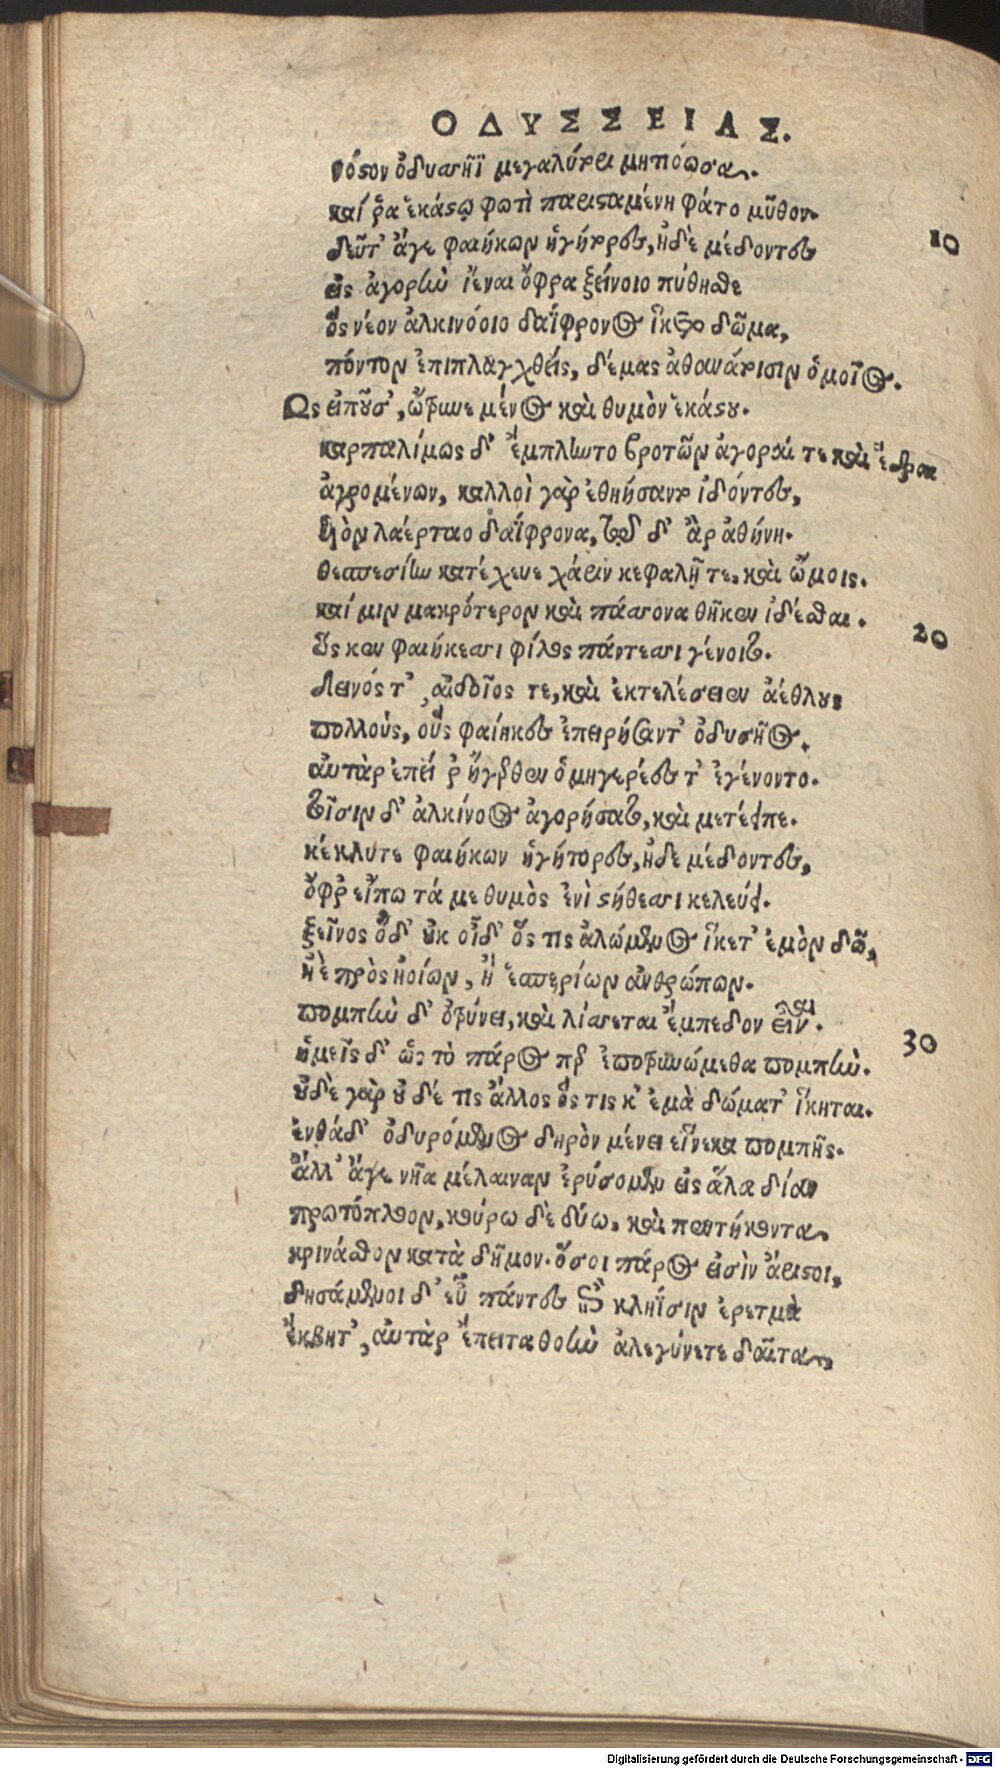 ΟΔΥΣΣΕΙΑΣ.
νόστον ὀδυσσῆϊ μεγαλήτορι μητιόωσα.
καί ῥα ἑκάστῳ φωτὶ παρισταμένη φάτο μῦθον.
δεῦτ' ἄγε φαιήκων ἡγήτορες, ἠδὲ μέδοντες
10
εἰς ἀγορὴν ἰέναι ὄφρα ξείνοιο πύθησθε
ὃς νέον ἀλκινόοιο δαΐφρονος ἵκετο δῶμα,
πόντον ἐπιπλαγχθείς, δέμας ἀθανάτοισιν ὁμοῖος.
Ως εἰποῦσ', ὤτρυνε μένος καὶ θυμὸν ἑκάστου.
καρπαλίμως δ' ἔμπληντο βροτῶν ἀγοραί τε καὶ ἕδραι
ἀγρομένων, πολλοὶ γὰρ ἐθηήσαντο ἰδόντες,
υἱὸν λαέρταο δαΐφρονα, τῷ δ' ἂρ ἀθήνη.
θεσπεσίην κατέχευε χάριν κεφαλῇ τε, καὶ ὤμοις.
καί μιν μακρότερον καὶ πάσσονα θῆκεν ἰδέσθαι.
20
ὥς κεν φαιήκεσσι φίλος πάντεσσι γένοιτο.
δεινός τ', αἰδοῖος τε, καὶ ἐκτελέσειεν ἀέθλους
πολλούς, οὓς φαίηκες ἐπειρήσαντ' ὀδυσῆος.
αὐτὰρ ἐπεί ῥ' ἤγερθεν ὁμηγερέες τ' ἐγένοντο.
τοῖσιν δ' ἀλκίνοος ἀγορήσατο, καὶ μετέειπε.
κέκλυτε φαιήκων ἡγήτορες, ἠδὲ μέδοντες,
ὄφρ' εἴπω τά με θυμὸς ἐνὶ στήθεσσι κελεύει.
ξεῖνος ὅδ' οὐκ οἶδ' ὅς τις ἀλώμενος ἵκετ' ἐμὸν δῶ,
ἠὲ πρὸς ἠοίων, ἢ ἑσπερίων ἀνθρώπων.
πομπὴν δ' ὀτρύνει, καὶ λίσσεται ἔμπεδον εἶναι.
30
ἡμεῖς δ' ὡς τὸ πάρος περ ἐποτρυνώμεθα πομπήν.
οὐδὲ γὰρ οὐδέ τις ἄλλος ὅς τις κ' ἐμὰ δώματ' ἵκηται.
ἐνθάδ' ὀδυρόμενος δηρὸν μένει εἵνεκα πομπῆς.
ἀλλ' ἄγε νῆα μέλαιναν ἐρύσομεν εἰς ἅλα δῖαν
πρωτόπλοον, κούρω δὲ δύω, καὶ πεντήκοντα,
κρινάσθον κατὰ δῆμον. ὅσοι πάρος εἰσὶν ἄριστοι,
δησάμενοι δ' εὖ πάντες ἐπὶ κληΐσιν ἐρετμὰ
ἔκβητ', αὐτὰρ ἔπειτα θοὴν ἀλεγύνετε δαῖτα,
Digitalisierung gefördert durch die Deutsche Forschungsgemeinschaft - DFG